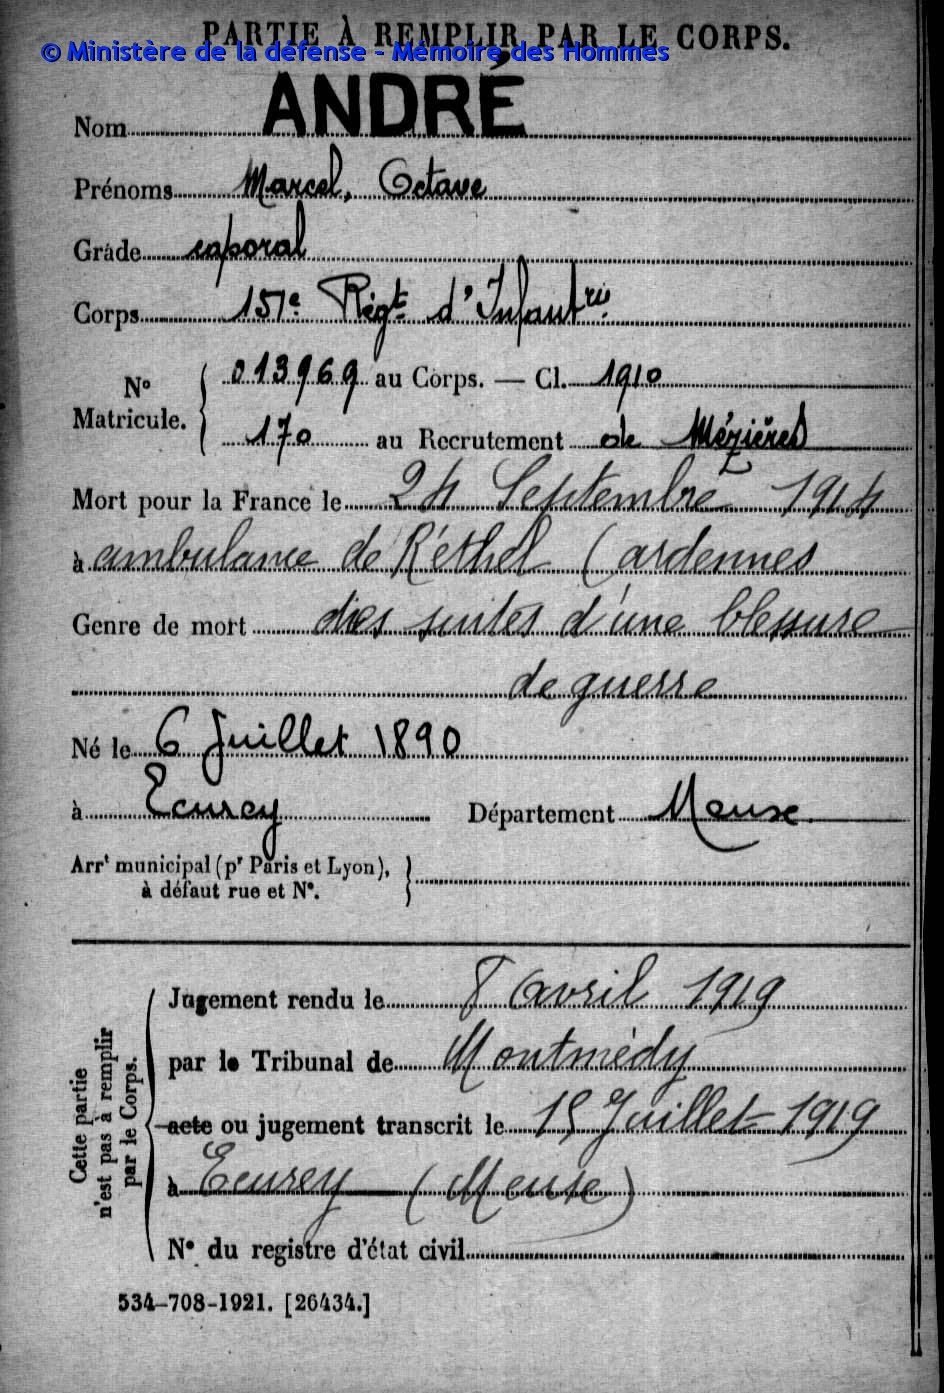 PARTIE À REMPLIR PAR LE CORPS.
© Ministère de la défense - Mémoire des Hommes
Nom ANDRÉ
Prénoms Marcel, Octave
Grade caporal
Corps 151e Régt d'Infantrie
No Matricule. { 013969 au Corps. — Cl. 1910
170 au Recrutement de Mézières
Mort pour la France le 24 Septembre 1914
à ambulance de Réthel (ardennes
Genre de mort des suites d'une blessure
de guerre
Né le 6 Juillet 1890
à Ecurey Département Meuse.
Arrt municipal (pr Paris et Lyon),
à défaut rue et No.
Cette partie
n'est pas à remplir
par le Corps.
Jugement rendu le 8 avril 1919
par le Tribunal de Montmédy
acte ou jugement transcrit le 15 Juillet 1919
à Ecurey (Meuse)
No du registre d'état civil
534-708-1921. [26434.]